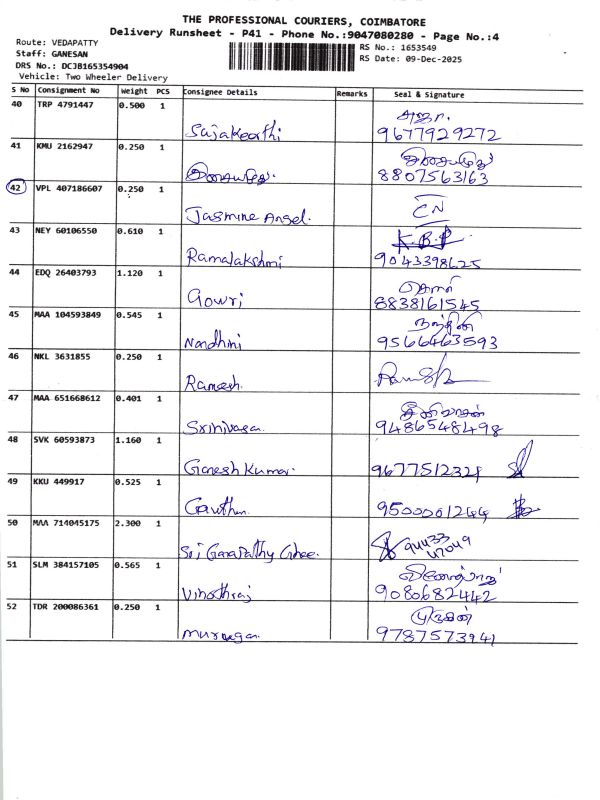 THE PROFESSIONAL COURIERS, COIMBATORE
Delivery Runsheet - P41 - Phone No.:9047080280 - Page No.:4
Route: VEDAPATTY
Staff: GANESAN
DRS No.: DCJB165354904
Vehicle: Two Wheeler Delivery
RS No.: 1653549
RS Date: 09-Dec-2025
S No Consignment No Weight PCS Consignee Details Remarks Seal & Signature
40 TRP 4791447 0.500 1
Sajakeerthi 9677929272
41 KMU 2162947 0.250 1
8807563163
42 VPL 407186607 0.250 1
Jasmine Angel. CN
43 NEY 60106550 0.610 1 K.B.P
Ramalakshmi 9043398625
44 EDQ 26403793 1.120 1 கௌரி
Gowri 8838161545
45 MAA 104593849 0.545 1 நந்தினி
Nandhini 9566463593
46 NKL 3631855 0.250 1
Ramesh
47 MAA 651668612 0.401 1 சீனிவாசன்
Srinivasa. 9486548498
48 SVK 60593873 1.160 1
Ganesh Kumar. 9677512321
49 KKU 449917 0.525 1
Gautham 9500061244
50 MAA 714045175 2.300 1
Sri Ganapathy Ghee. 94433
47049
51 SLM 384157105 0.565 1 வினோத்ராஜ்
Vinothraj 9080682442
52 TDR 200086361 0.250 1 முருகன்
Murugan 9787573941